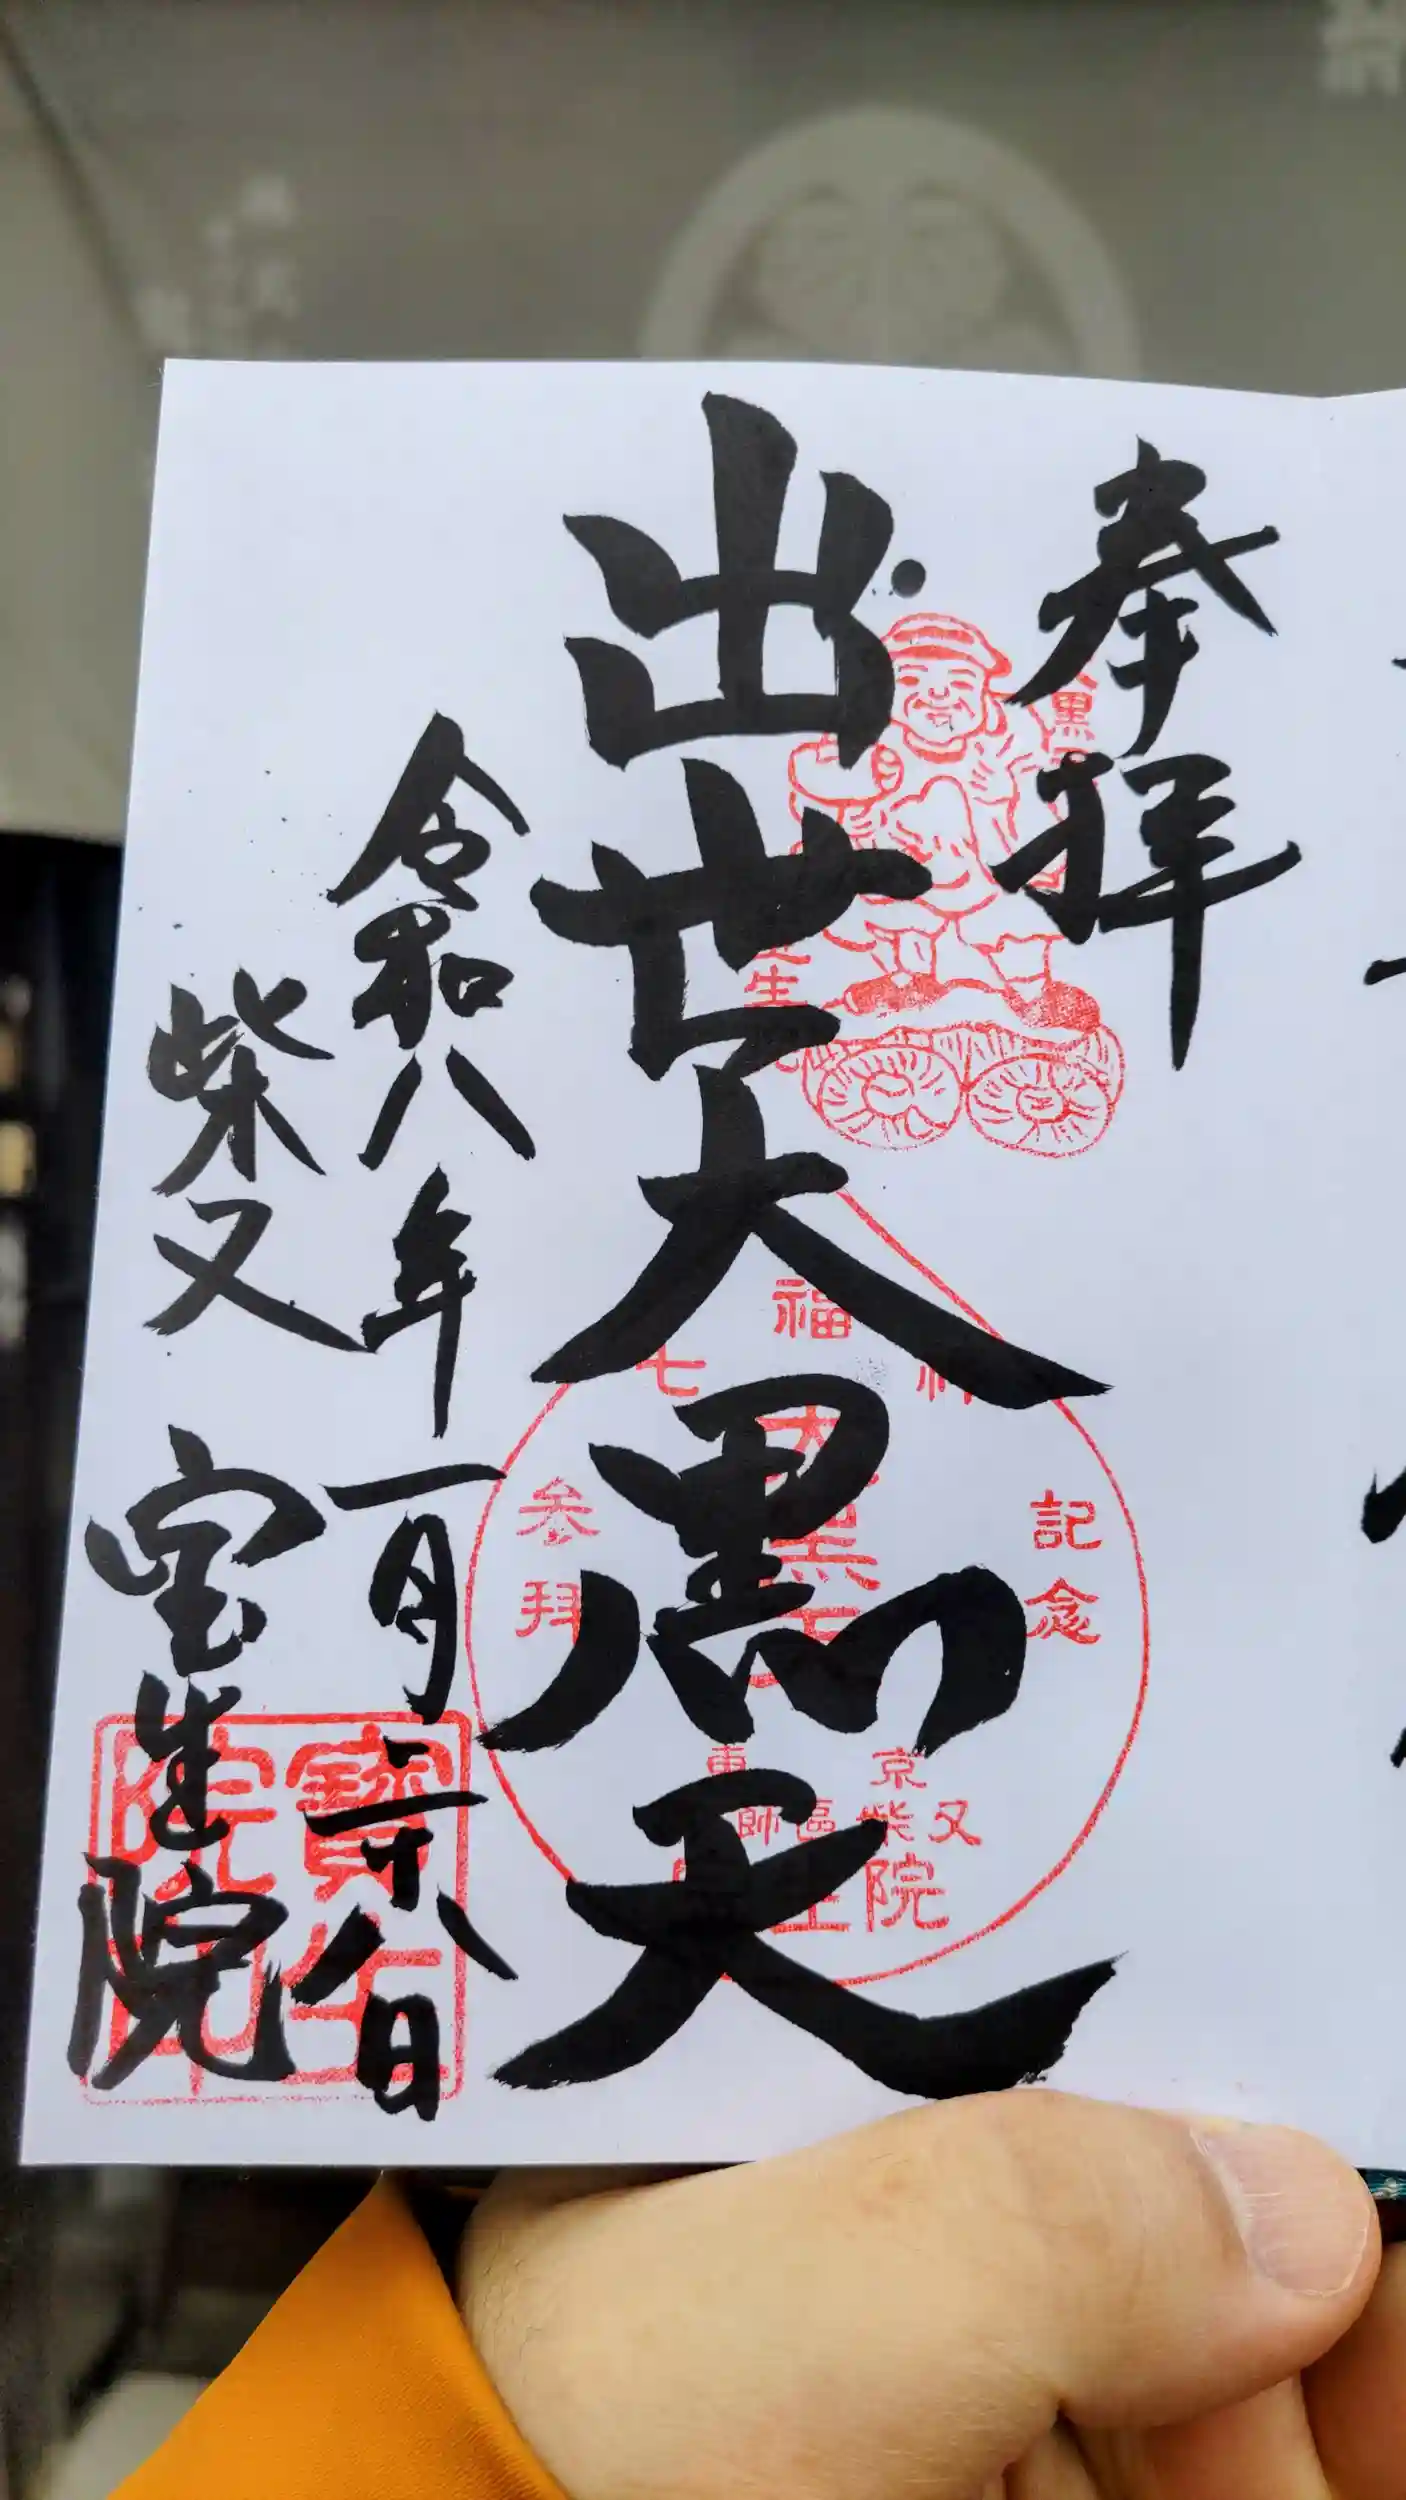 奉拝
出世大黒天
令和八年一月二十八日
柴又
宝生院
黒
生
福
七
神
参拝
記念
大黒天
東京
柴又
院
寶生院印